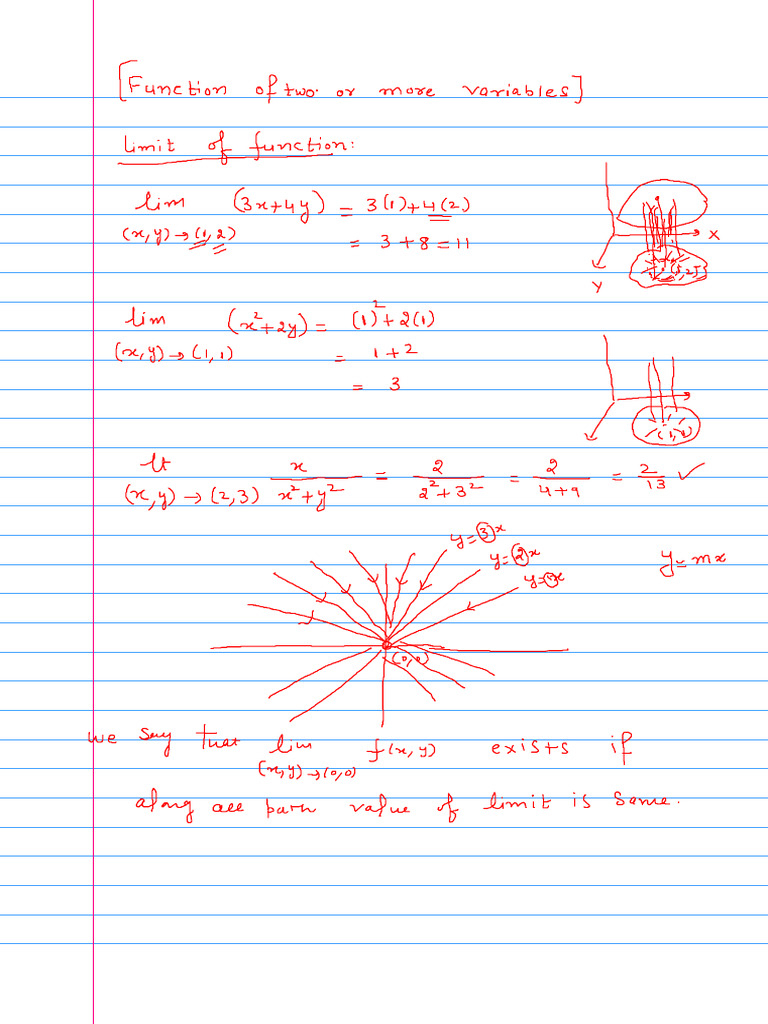 [Function of two or more variables]
Limit of function:
lim (3x+4y) = 3(1)+4(2)
(x,y)→(1,2) = 3+8=11
X
Y
lim (x²+2y) = (1)²+2(1)
(x,y)→(1,1) = 1+2
= 3
lt x/(x²+y²) = 2/(2²+3²) = 2/(4+9) = 2/13 ✓
(x,y)→(2,3)
y=3x
y=2x
y=mx
(0,0)
we say that lim f(x,y) exists if
(x,y)→(0,0)
along all path value of limit is same.